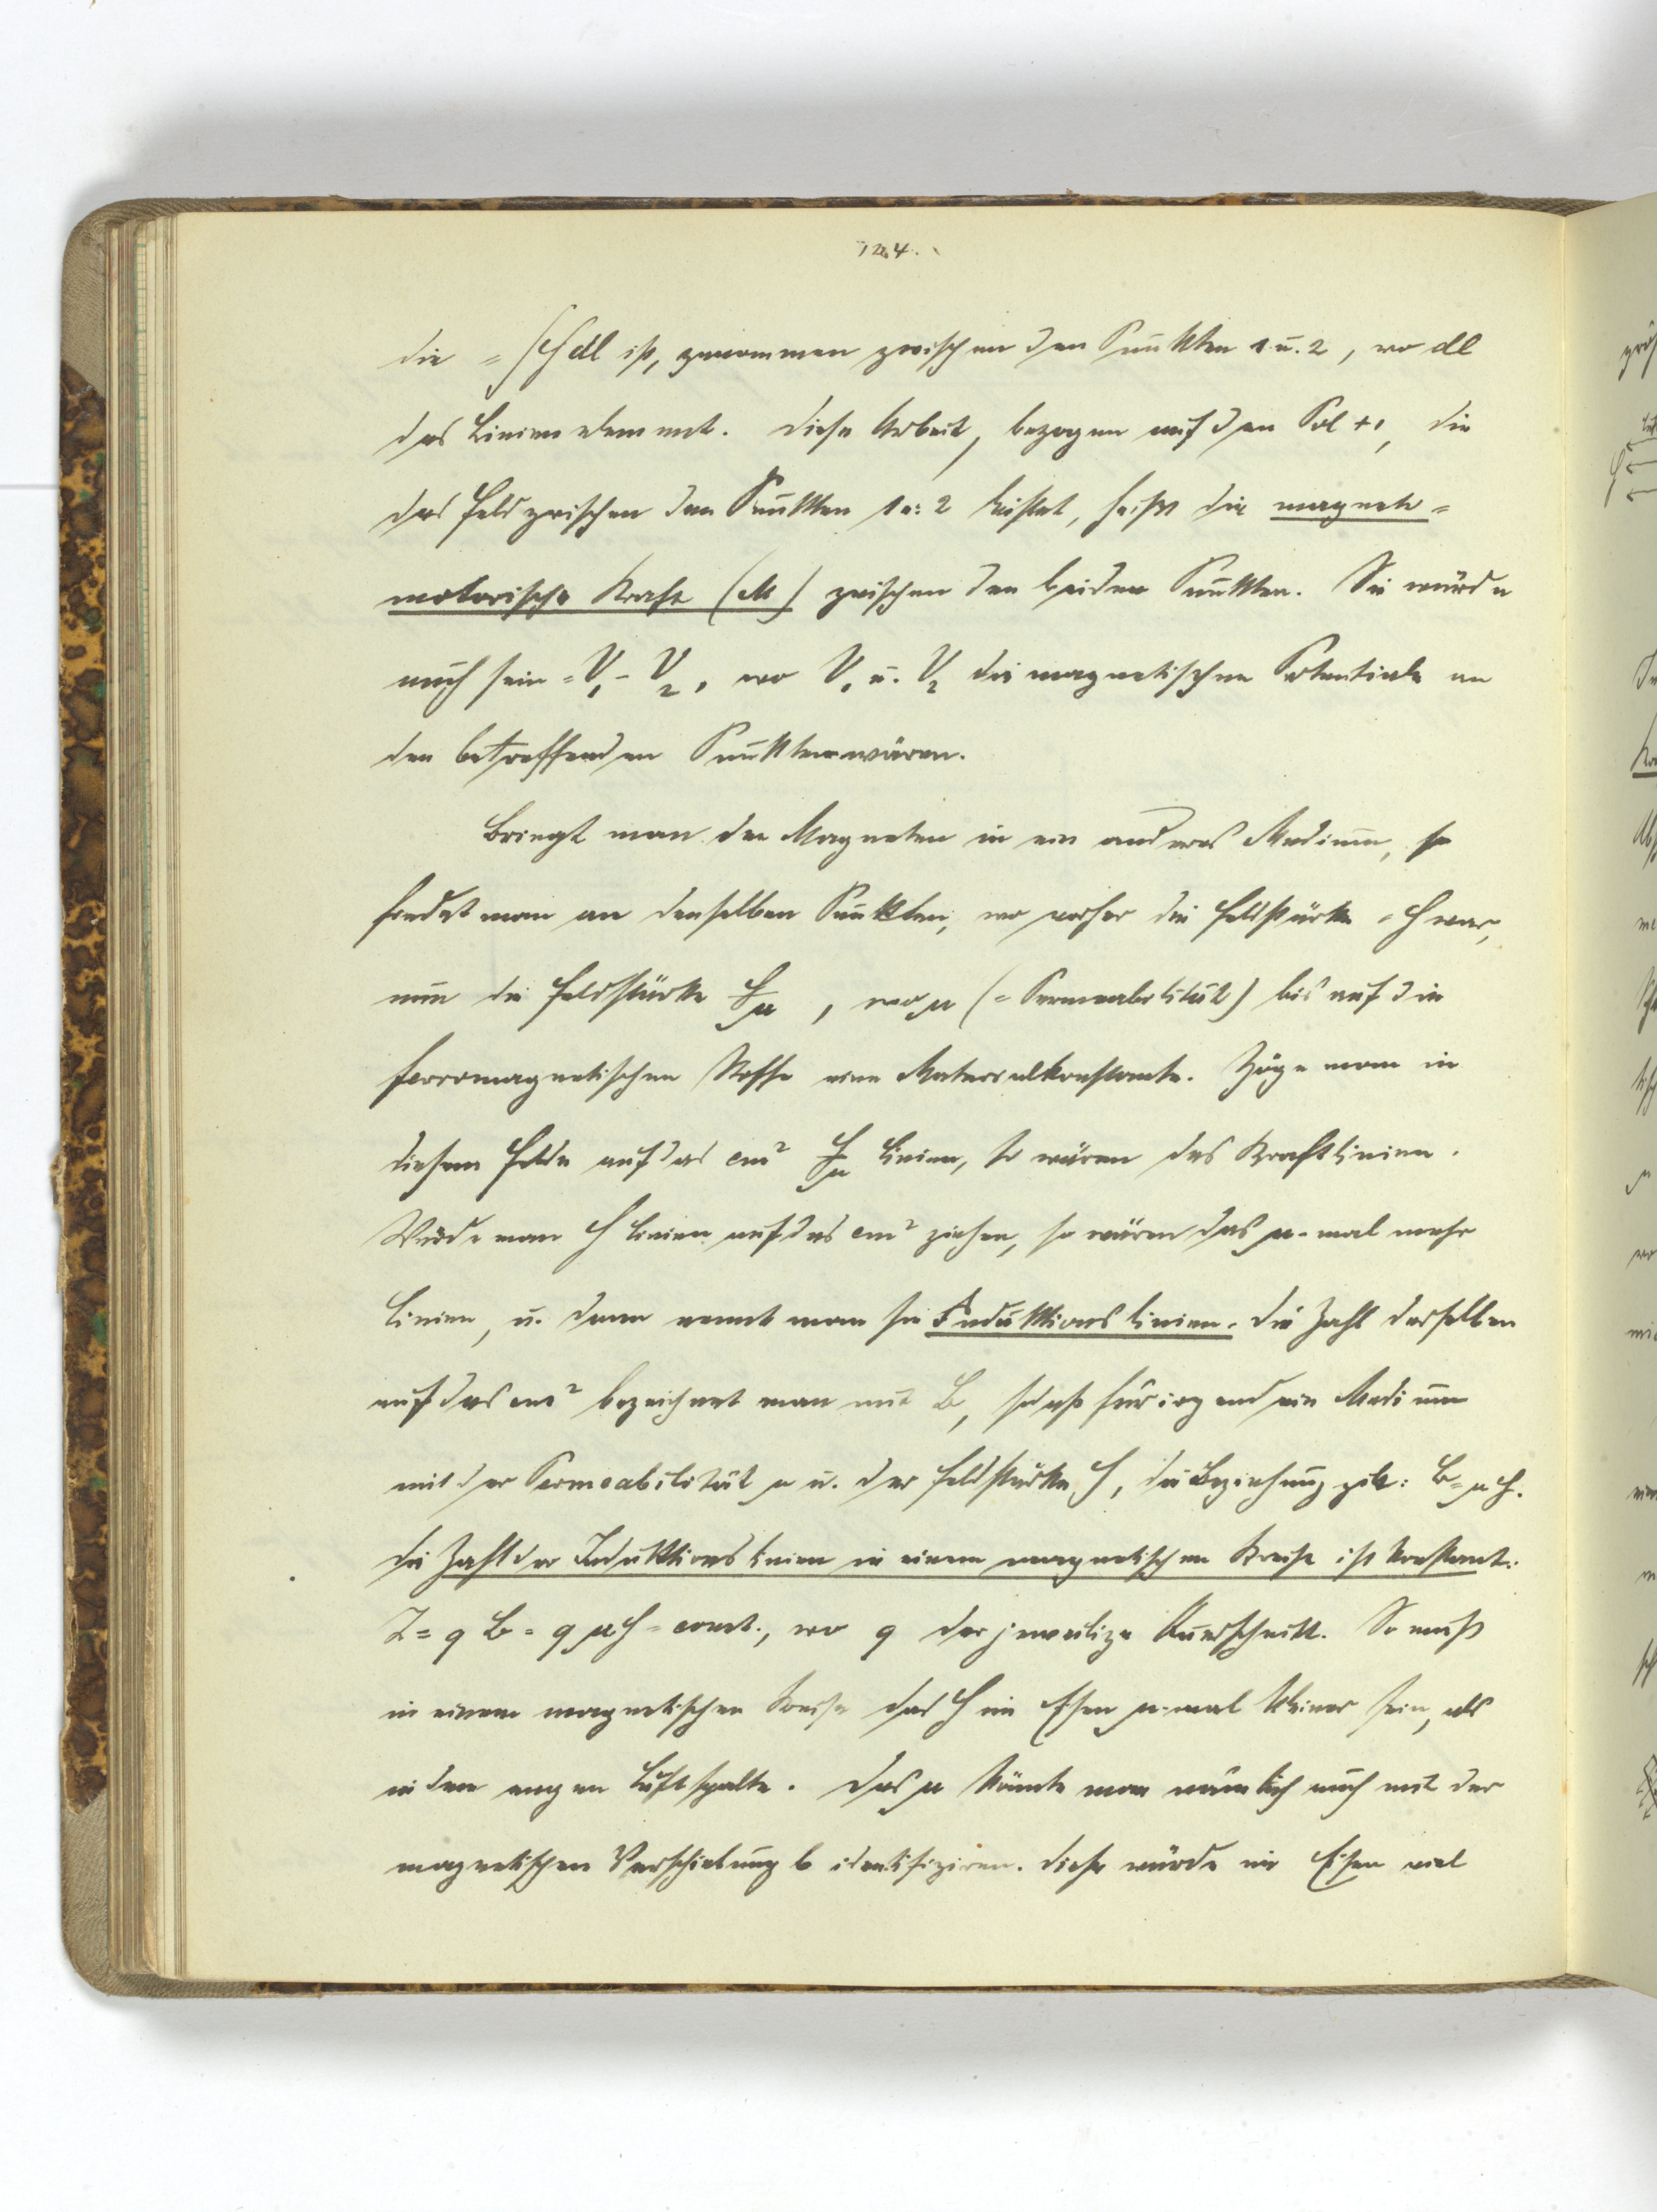 124.
die = ∫H dl ist, genommen zwischen den Punkten 1 u. 2, wo dl
das Linienelement. Diese Arbeit, bezogen auf den Pol +1, die
das Feld zwischen den Punkten 1 u. 2 leistet, heisst die magneto-
motorische Kraft (M) zwischen den beiden Punkten. Sie würde
auch sein = V₁ - V₂, wo V₁ u. V₂ die magnetischen Potentiale an
den betreffenden Punkten wären.
Bringt man den Magneten in ein anderes Medium, so
findet man an denselben Punkten, wo vorher die Feldstärke = H war,
nun die Feldstärke H/μ, wo μ (= Permeabilität) bis auf die
ferromagnetischen Stoffe eine Materialkonstante. Zöge man in
diesem Felde auf das cm² H/μ Linien, so wären das Kraftlinien.
Würde man H Linien auf das cm² ziehen, so wären das μ-mal mehr
Linien, u. dann nennt man sie Induktionslinien. Die Zahl derselben
auf das cm² bezeichnet man mit B, sodass für irgend ein Medium
mit der Permeabilität μ u. der Feldstärke H, die Beziehung gilt: B = μH.
Die Zahl der Induktionslinien in einem magnetischen Kreise ist konstant:
Z = q B = q μ H = const., wo q der jeweilige Querschnitt. So muss
in einem magnetischen Kreise das H im Eisen μ-mal kleiner sein, als
in dem engen Luftspalte. Das μ könnte man nämlich auch mit der
magnetischen Verschiebung b identifiziren. Diese würde im Eisen viel